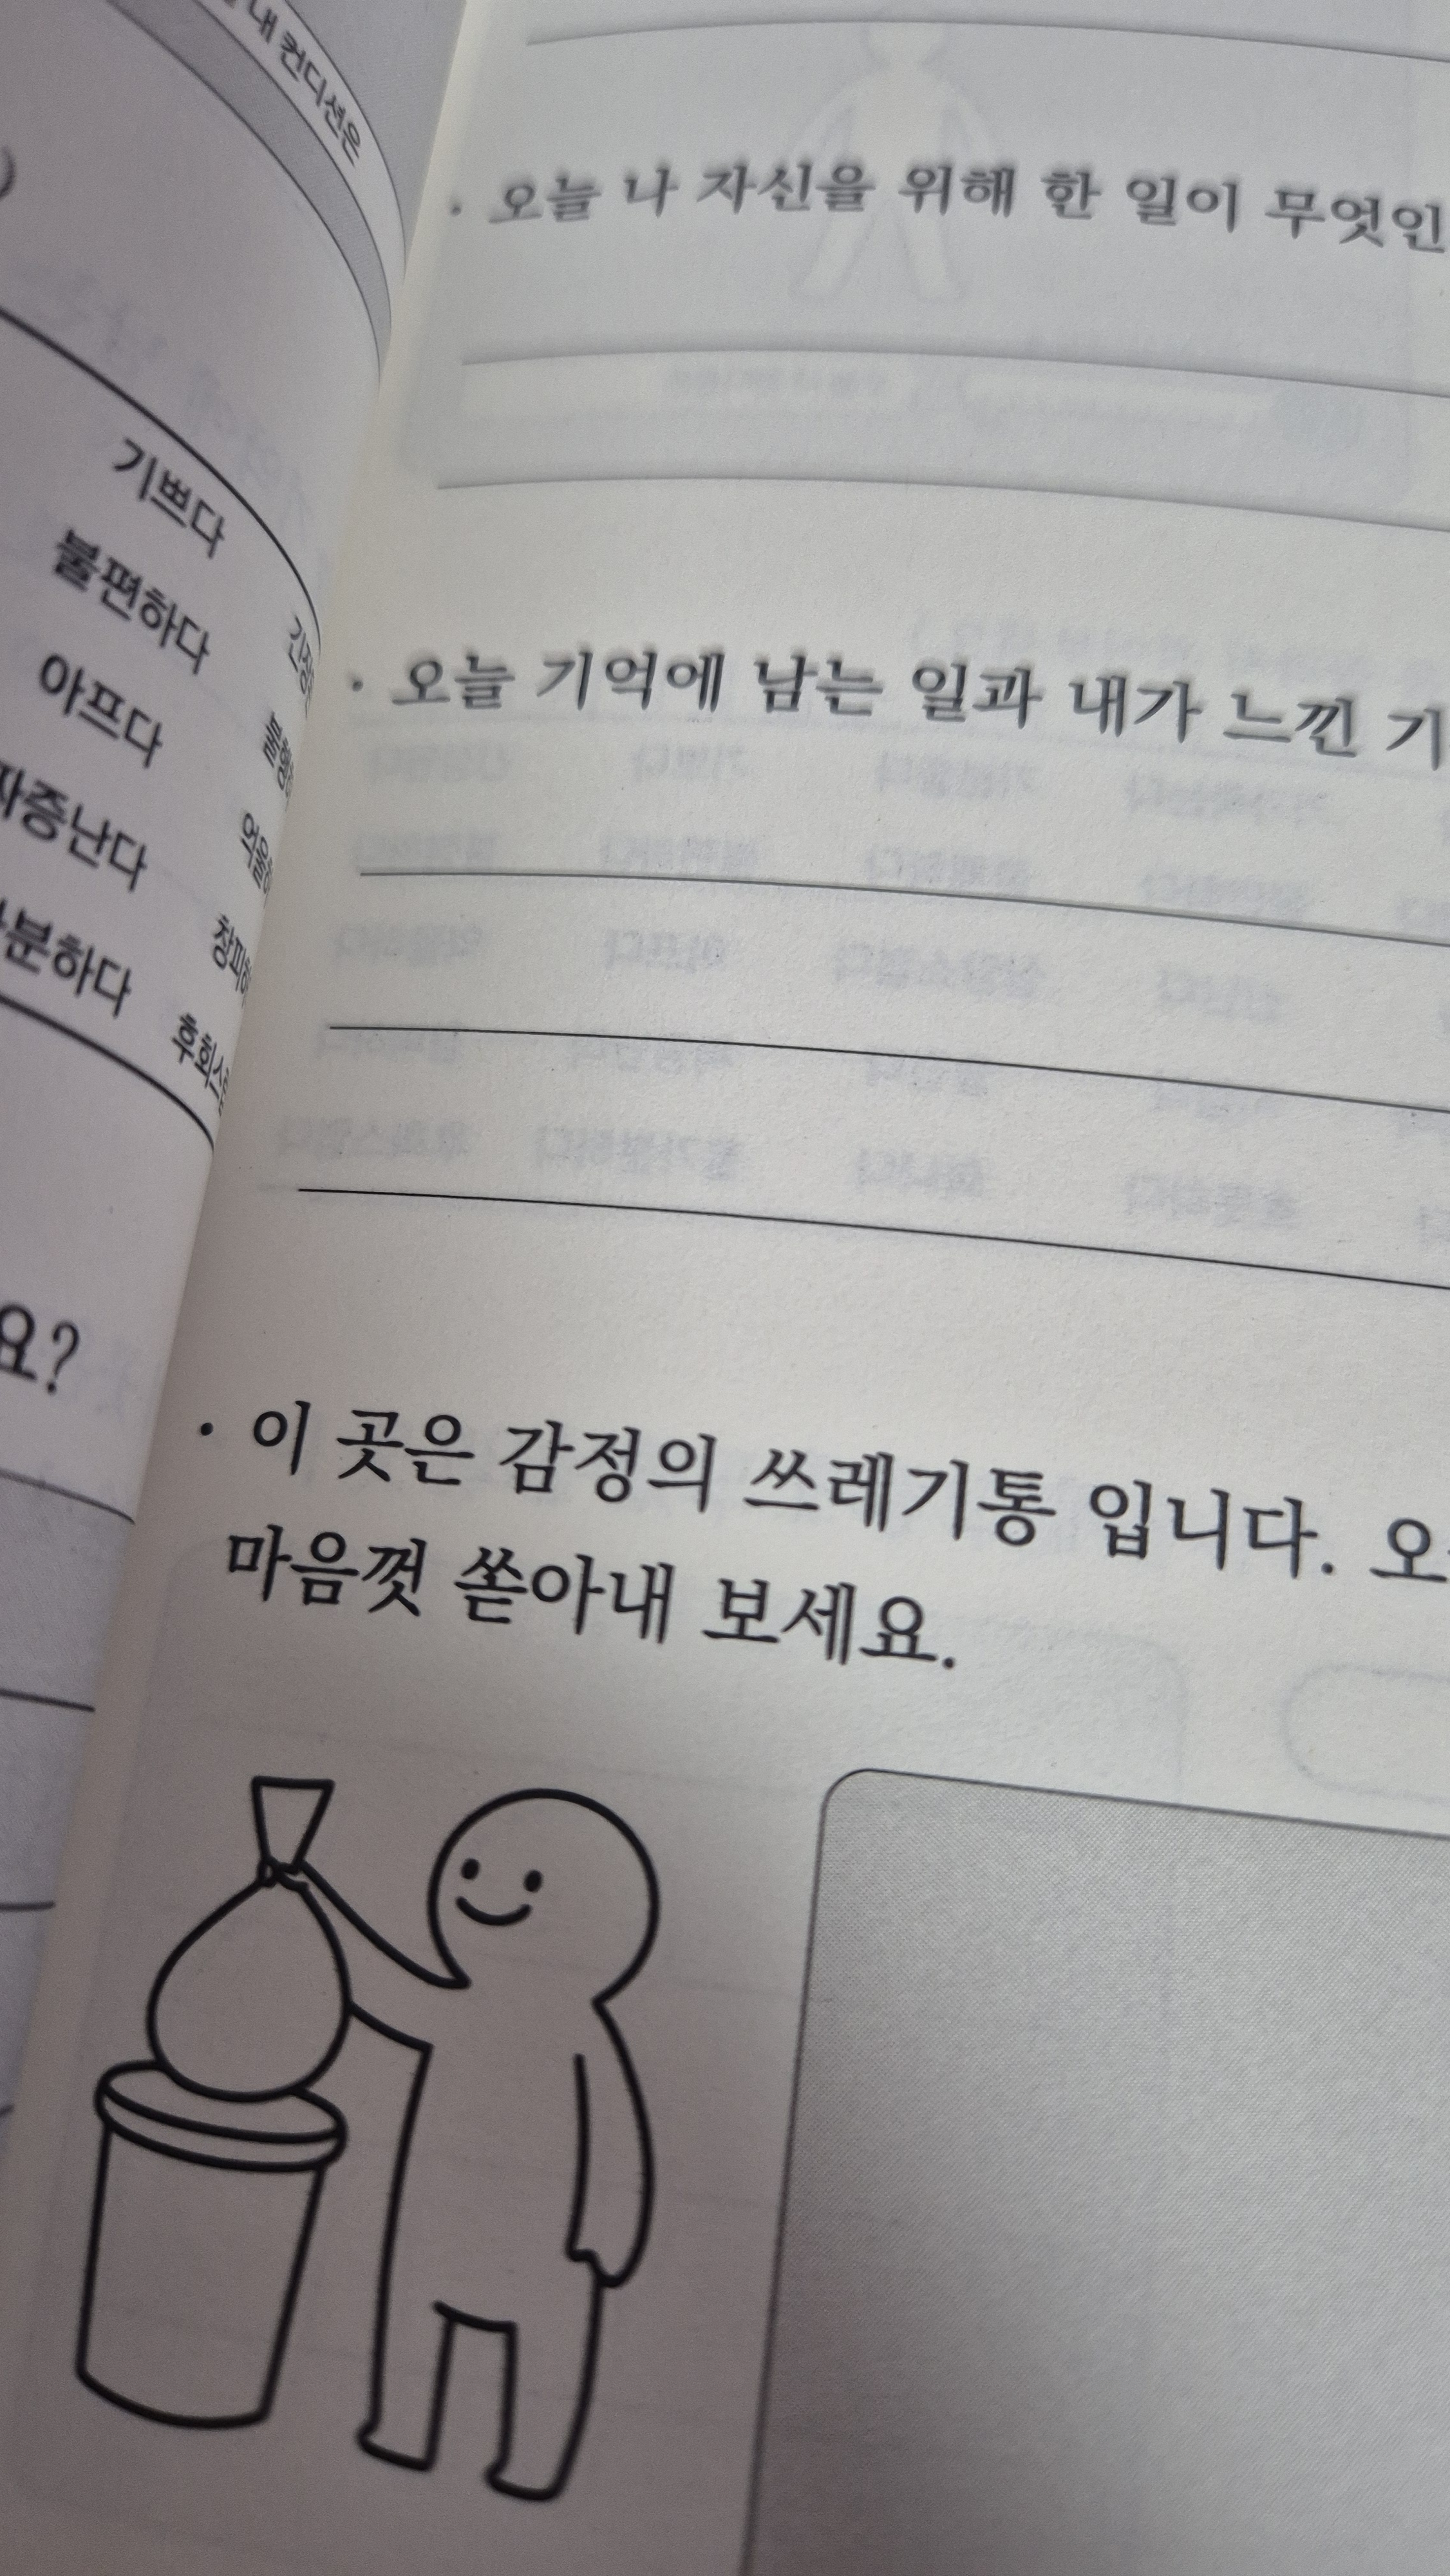 내 컨디션은
기쁘다
불편하다
아프다
짜증난다
후회스
요?
· 오늘 나 자신을 위해 한 일이 무엇인
· 오늘 기억에 남는 일과 내가 느낀 기
· 이 곳은 감정의 쓰레기통 입니다. 오
마음껏 쏟아내 보세요.